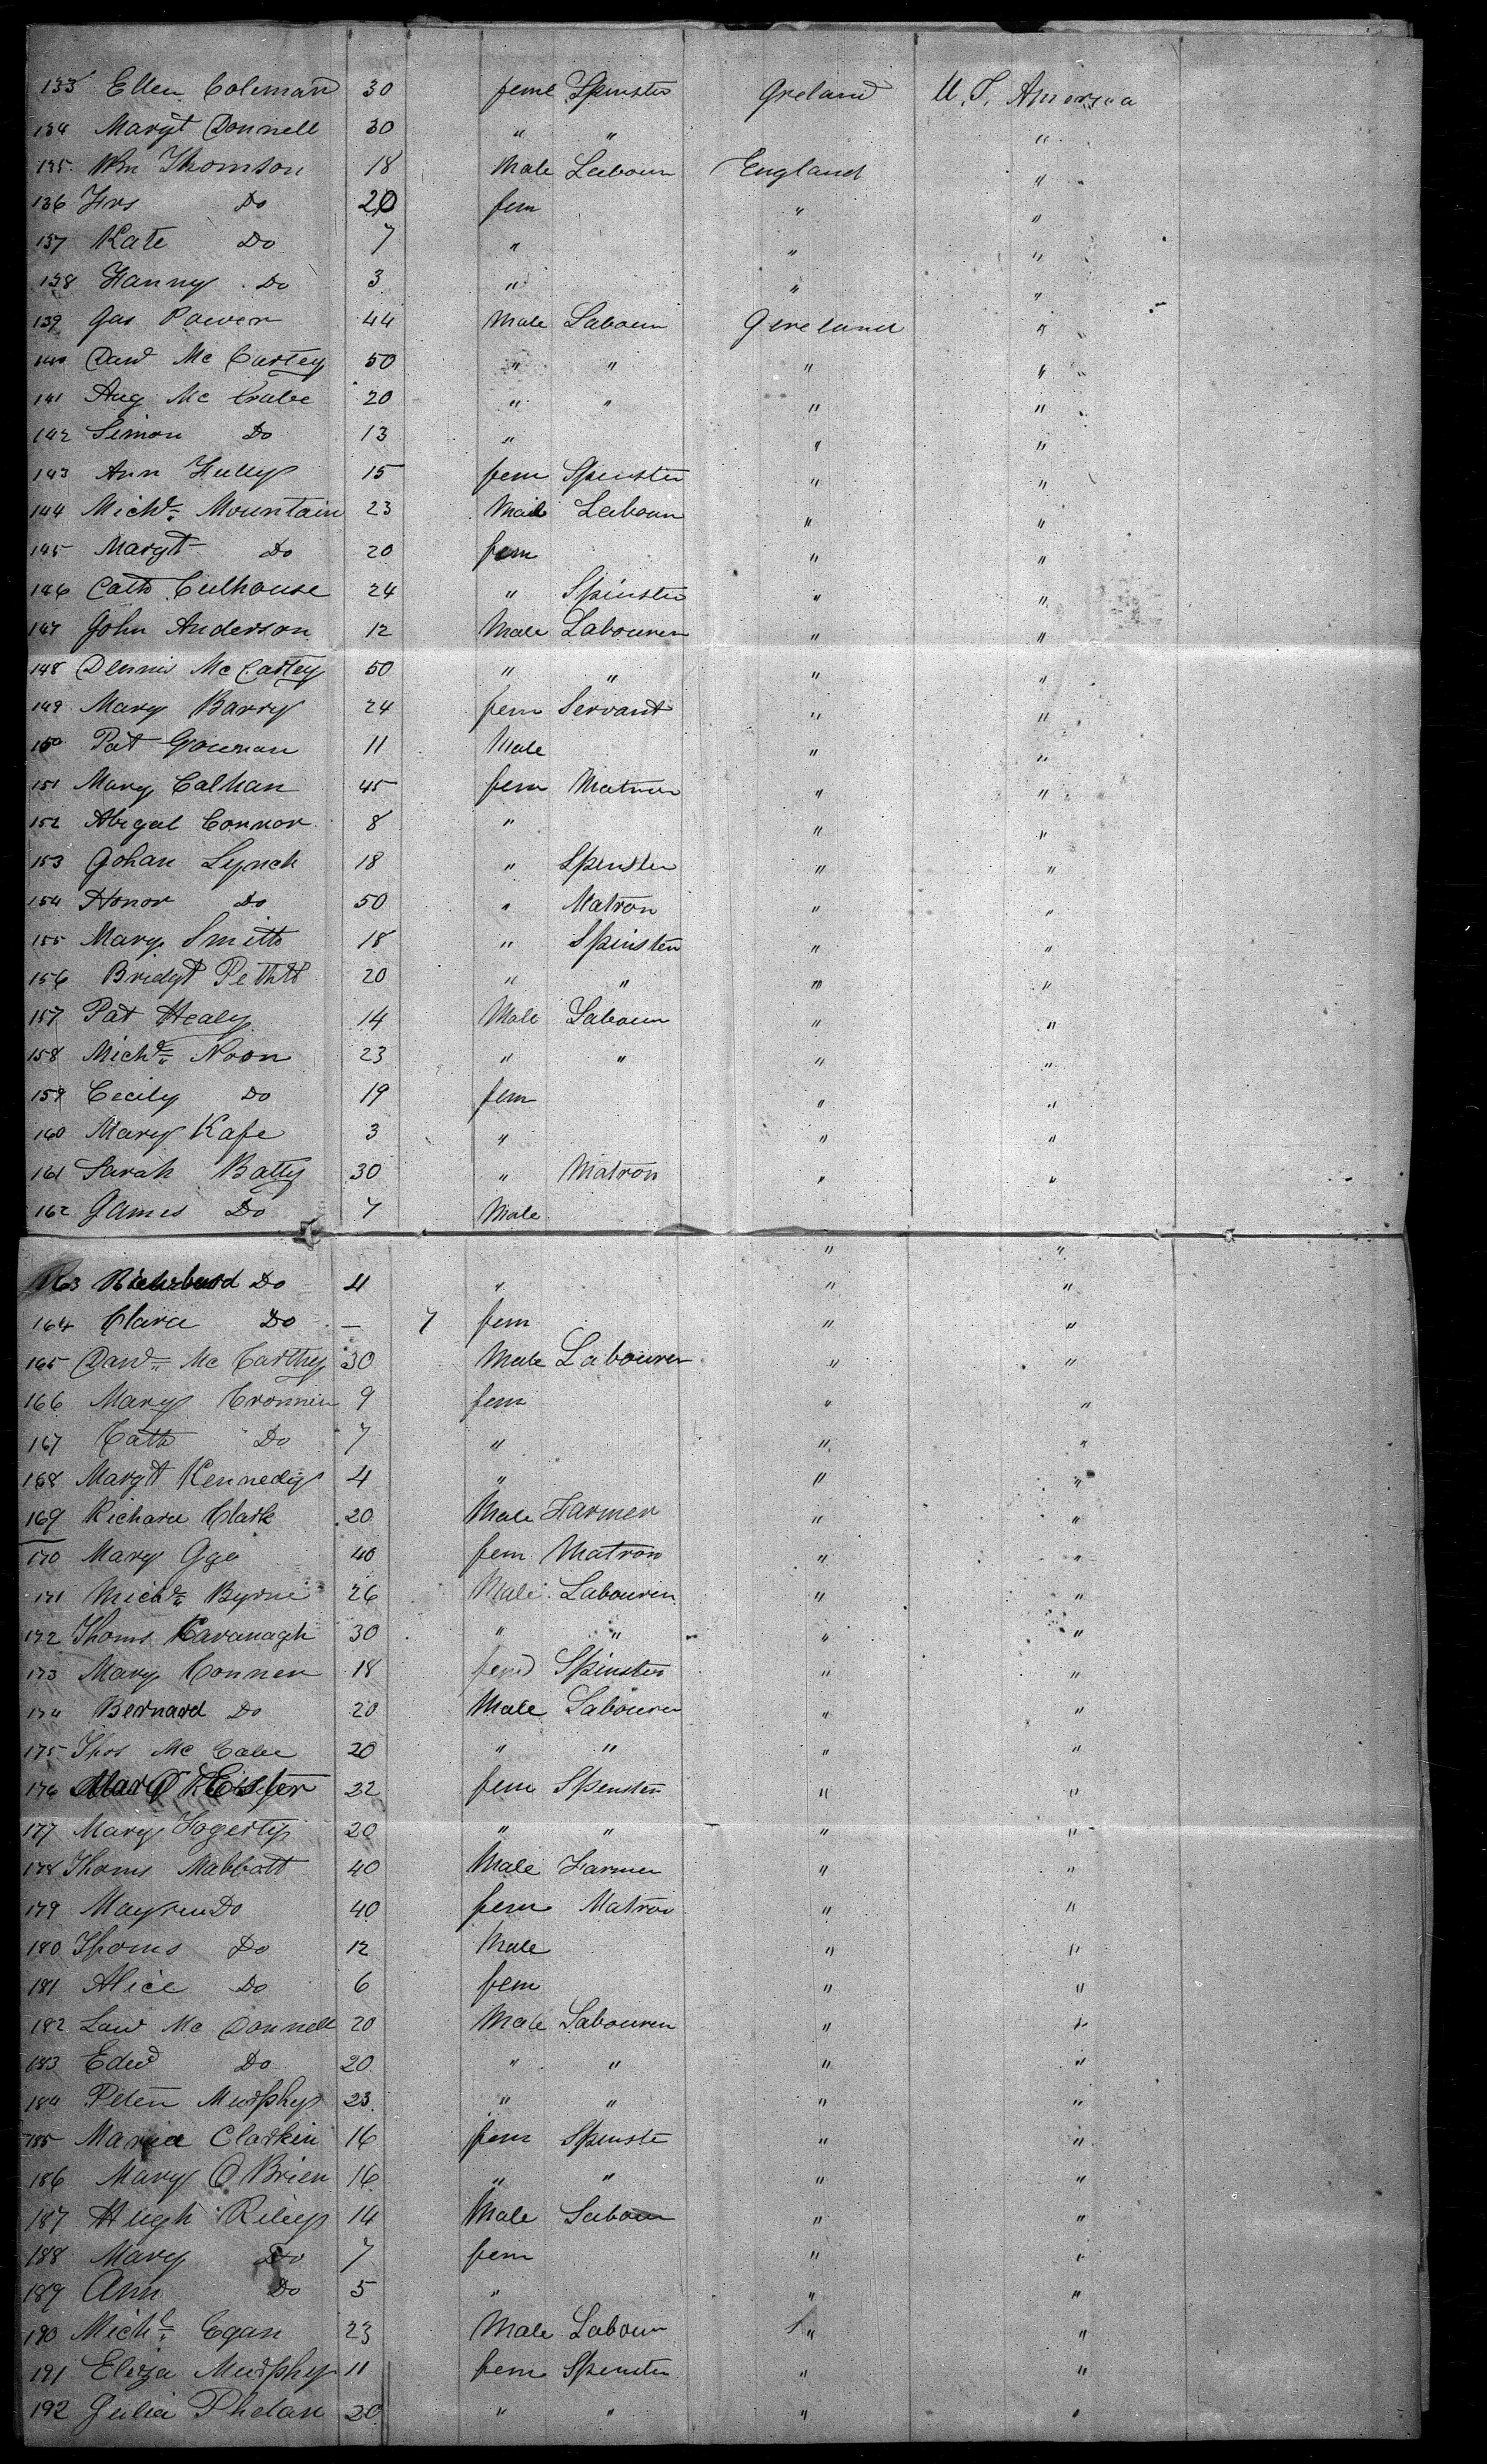 133 Ellen Coleman 30 feme Spinster Ireland U. S. America
134 Margt Donnell 30 " " "
135 Wm Thomson 18 Male Labour England "
136 Frs Do 20 fem " "
137 Kate Do 7 " " "
138 Fanny Do 3 " " "
139 Jas Power 44 Male Labour Ireland "
140 Dard Mc Cartey 50 " " " "
141 Aug Mc Crabe 20 " " " "
142 Simon Do 13 " " "
143 Ann Fully 15 fem Spinster " "
144 Michl Mountain 23 Male Labour " "
145 Margt Do 20 fem " "
146 Cath Culhouse 24 " Spinster " "
147 John Anderson 12 Male Labourer " "
148 Dennis Mc Cartey 50 " " " "
149 Mary Barry 24 fem Servant " "
150 Pat Gournan 11 Male " "
151 Mary Calhan 45 fem Matron " "
152 Abigal Connor 8 " " "
153 Johan Lynch 18 " Spenster " "
154 Honor Do 50 " Matron " "
155 Mary Smith 18 " Spinster " "
156 Bridgt Pethtt 20 " " " "
157 Pat Healy 14 Male Labour " "
158 Michl Noon 23 " " " "
159 Cecily Do 19 fem " "
160 Mary Kafe 3 " " "
161 Sarah Batty 30 " Matron " "
162 James Do 7 Male " "
163 Do 4 " " "
164 Clara Do — 7 fem " "
165 Dard Mc Carthy 30 Male Labourer " "
166 Mary Cronnin 9 fem " "
167 Cath Do 7 " " "
168 Margt Kennedy 4 " " "
169 Richard Clark 20 Male Farmer " "
170 Mary Ggo 40 fem Matron " "
171 Michl Byrne 26 Male Labourer " "
172 Thoms Kavanagh 30 " " " "
173 Mary Conner 18 fem Spinster " "
174 Bernard Do 20 Male Labourer " "
175 Thos Mc Cabe 20 " " " "
176 22 fem Spenster " "
177 Mary Fogerty 20 " " " "
178 Thoms Mabbott 40 Male Farmer " "
179 Do 40 fem Matron " "
180 Thoms Do 12 Male " "
181 Alice Do 6 fem " "
182 Law Mc Donnell 20 Male Labourer " "
183 Edwd Do 20 " " " "
184 Peter Murphy 23 " " " "
185 Maria Clarkin 16 fem Spenste " "
186 Mary O Brien 16 " " " "
187 Hugh Riley 14 Male Labour " "
188 Mary Do 7 fem " "
189 Ann Do 5 " " "
190 Michl Egan 23 Male Labour " "
191 Eliza Murphy 11 fem Spenster " "
192 Julia Phelan 20 " " " "